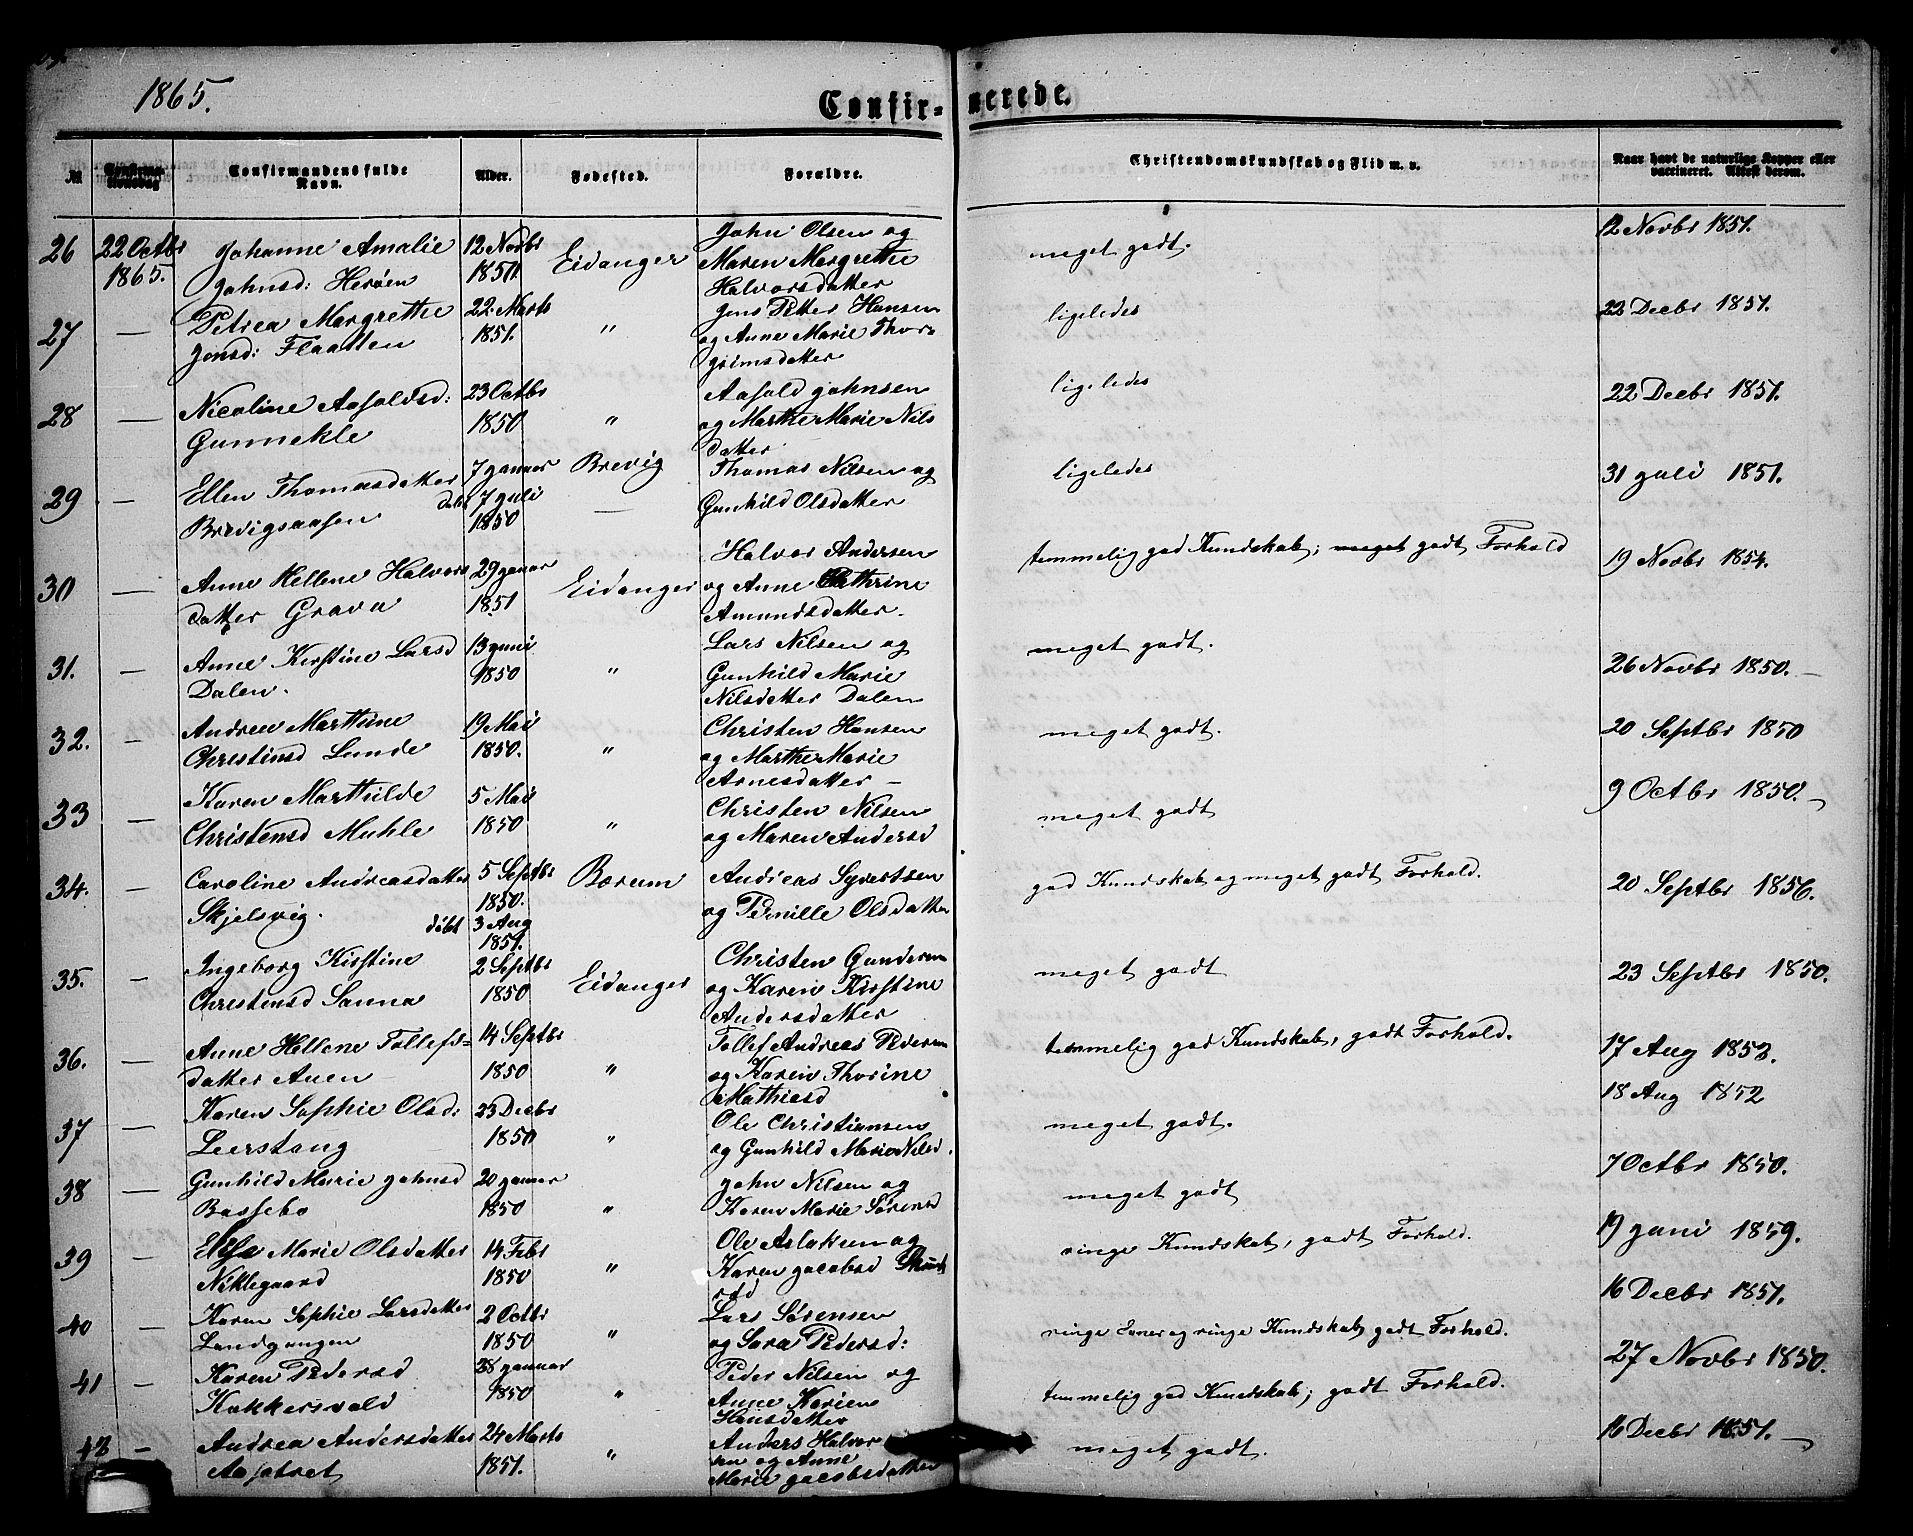 1865.
Confirmerede.
№ Confirmationsdag Confirmandens fulde Navn. Alder. Fødested. Forældre. Christendomskundskab og Flid m. v. Naar havt de naturlige Kopper eller vaccineret. Attest derom.
26 22 Octbr 1865. Johanne Amalie Johnsd: Herøen 12 Novbr 1850. Eidanger John Olsen og Maren Margrethe Halvorsdatter meget godt. 12 Novbr 1851.
27 — Petrea Margrethe Jensd: Flaatten 22 Marts 1851. " Jens Petter Hansen og Anne Marie Thorgrimsdatter ligeledes 22 Decbr 1851.
28 — Nicoline Aasoldsd: Gunnekle 23 Octbr 1850 " Aasold Johnsen og Marthe Marie Nilsdatter ligeledes 22 Decbr 1851.
29 — Ellen Thomasdatter Brevigsaasen 7 Januar døbt 7 Juli 1850 Brevig — Thomas Nilsen og Gunhild Olsdatter ligeledes 31 Juli 1851.
30 — Anne Hellene Halvorsdatter Grava 29 Januar 1851 Eidanger Halvor Andersen og Anne Cathrine Amundsdatter. temmelig god Kundskab; meget godt Forhold 19 Novbr 1854.
31. — Anne Kirstine Larsd Dalen. 13 Juni 1850 " Lars Nilsen og Gunhild Marie Nilsdatter Dalen meget godt. 26 Novbr 1850. —
32. — Andrea Marthine Christensd Lunde 19 Mai 1850. " Christen Hansen og Marthe Marie Arnesdatter — meget godt. 20 Septbr 1850
33 — Karen Marthilde Christensd Muhle 5 Mai 1850 " Christen Nilsen og Maren Andersd meget godt 9 Octbr 1850. —
34. — Caroline Andreasdatter Skjelsvig. 5 Septbr 1850. døbt 3 Aug 1851. Bærum Andreas Syvertsen og Pernille Olsdatter god Kundskab og meget godt Forhold. 20 Septbr 1856.
35. — Ingeborg Kirstine Christensd Sanna 2 Septbr 1850 Eidanger Christen Gundersen og Karen Kirstine Andersdatter meget godt 23 Septbr 1850.
36. — Anne Hellene Tollefsdatter Auen 14 Septbr 1850 " Tollef Andreas Pedersen og Karen Thorine Mathiesd temmelig god Kundskab, godt Forhold. 17 Aug 1853.
37 — Karen Sophie Olsd: Leerstang 23 Decbr 1850 " Ole Christiansen og Gunhild Marie Nilsd. meget godt. 18 Aug 1852
38 — Gunhild Marie Johnsd Bassebo 20 Januar 1850 " John Nilsen og Karen Marie Sørensd meget godt 7 Octbr 1850.
39 — Else Marie Olsdatter Niklegaard 14 Febr 1850 " Ole Aslaksen og Karen Jacobsd ringe Kundskab, godt Forhold. 19 Juni 1859.
40 — Karen Sophie Larsdatter Landgangen 2 Octbr 1850 " Lars Sørensen og Sara Pedersd: ringe Evner og ringe Kundskab, godt Forhold. 16 Decbr 1851.
41 — Karen Pedersd Kokkersvold 28 Januar 1850 " Peder Nilsen og Anne Karine Hansdatter temmelig god Kundskab; godt Forhold. 27 Novbr 1850.
42 — Andrea Andersdatter Aastret 24 Marts 1851. " Anders Halvorsen og Anne Marie Jacobsdatter meget godt. 16 Decbr 1851. —